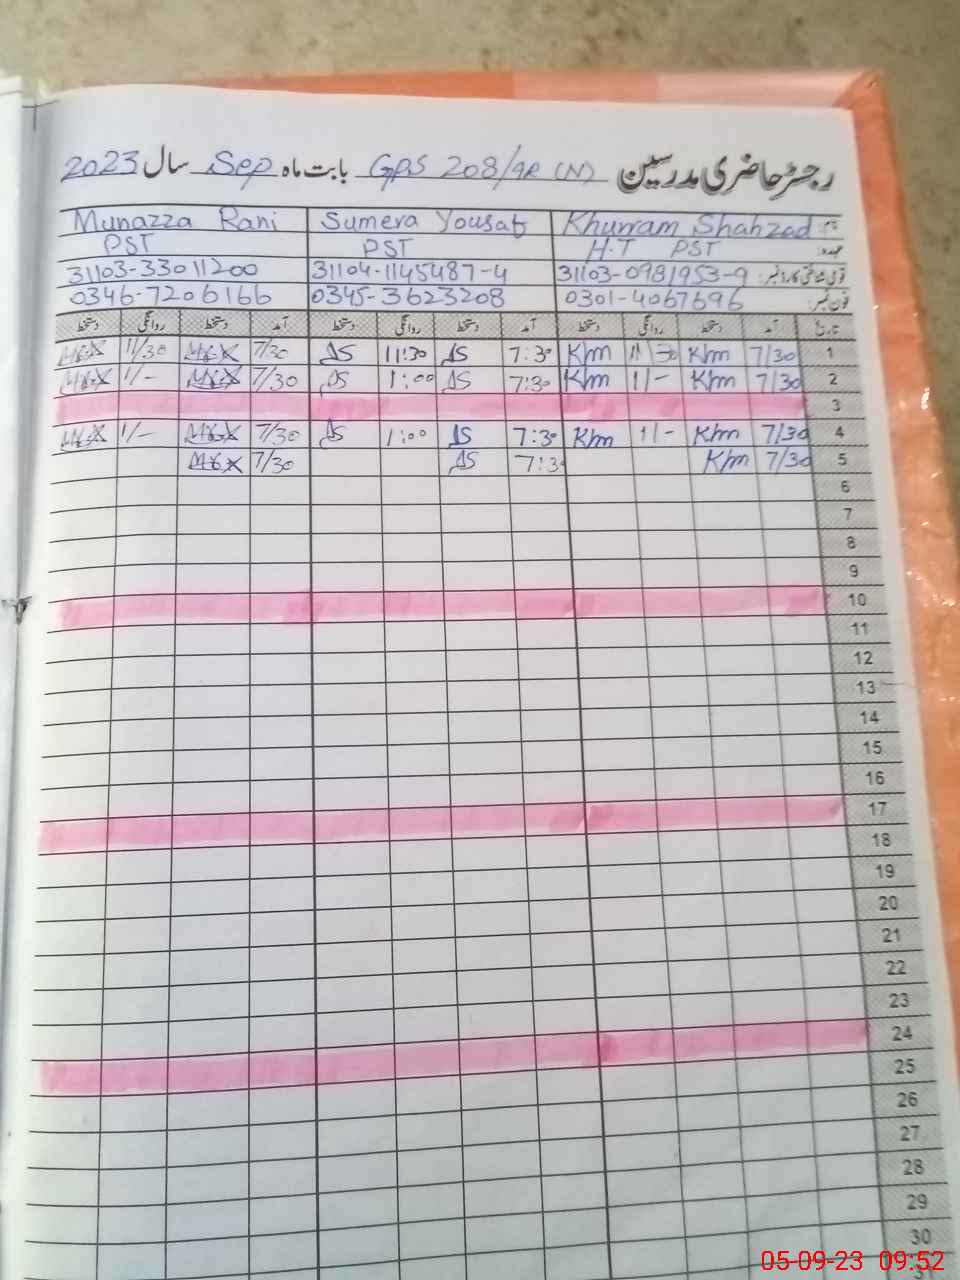 رجسٹر حاضری مدرسین GPS 208/9R (N) بابت ماہ Sep سال 2023
نام Khurram Shahzad Sumera Yousaf Munazza Rani
عہدہ: H.T PST PST PST
قومی شناختی کارڈ نمبر: 31103-0981953-9 31104-1145487-4 31103-33011200
فون نمبر: 0301-4067696 0345-3623208 0346-7206166
تاریخ آمد دستخط روانگی دستخط آمد دستخط روانگی دستخط آمد دستخط روانگی دستخط
1 7/30 Khm 11/30 Khm 7:30 11:30 7/30 11/30
2 7/30 Khm 1/- Khm 7:30 1:00 7/30 1/-
3
4 7/30 Khm 1/- Khm 7:30 1:00 7/30 1/-
5 7/30 Khm 7:30 7/30
6
7
8
9
10
11
12
13
14
15
16
17
18
19
20
21
22
23
24
25
26
27
28
29
30
05-09-23 09:52